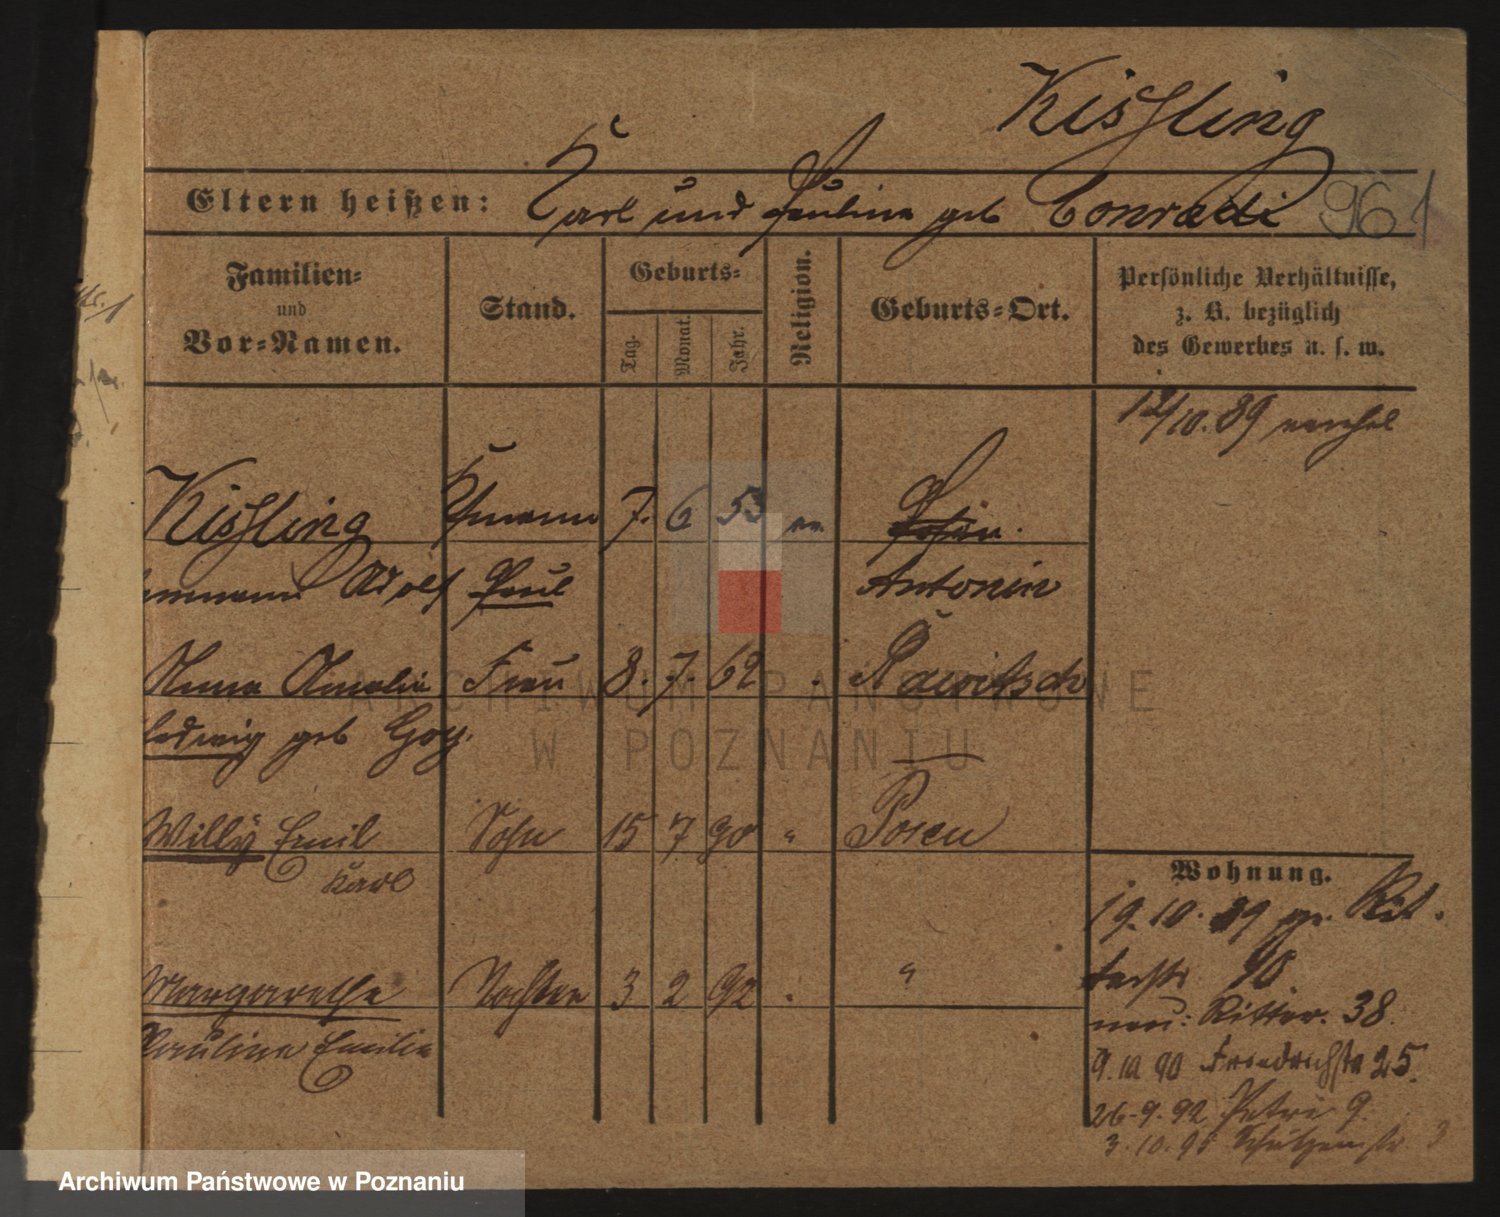 Kissling
961
Eltern heißen: Karl und Pauline geb Conradi
Familien-
und
Vor-Namen.
Stand.
Geburts-
Tag.
Monat.
Jahr.
Religion.
Geburts-Ort.
Persönliche Verhältnisse,
z. B. bezüglich
des Gewerbes u. s. w.
12/10. 89
Kissling 7. 6 53
Adolf Paul Antonin
Anna Amalie Frau 8. 7. 62 Rawitsch
Hedwig geb Goy.
Willy Emil Sohn 15 7 90 " Posen
Karl
Wohnung.
19. 10. 89 gr. Rit-
terstr 10
Margarethe Tochter 3 2 92 "
neu: Ritter. 38.
Pauline Emilie
9. 10 90 Friedrichstr 25.
26-9. 92 Petri 9.
3. 10. 95 Schützenstr 3
ARCHIWUM PAŃSTWOWE
W POZNANIU
Archiwum Państwowe w Poznaniu